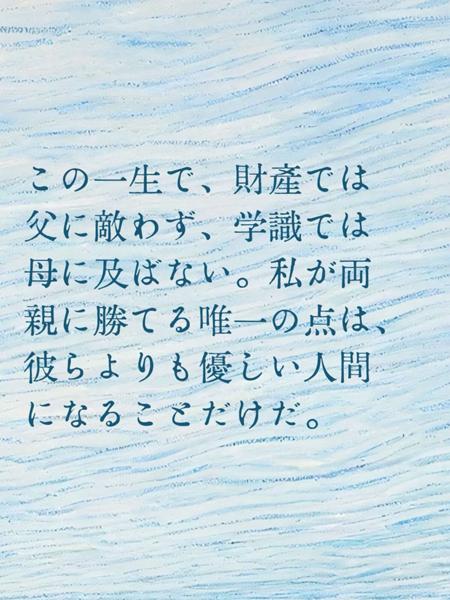 この一生で、財産では
父に敵わず、学識では
母に及ばない。私が両
親に勝てる唯一の点は、
彼らよりも優しい人間
になることだけだ。